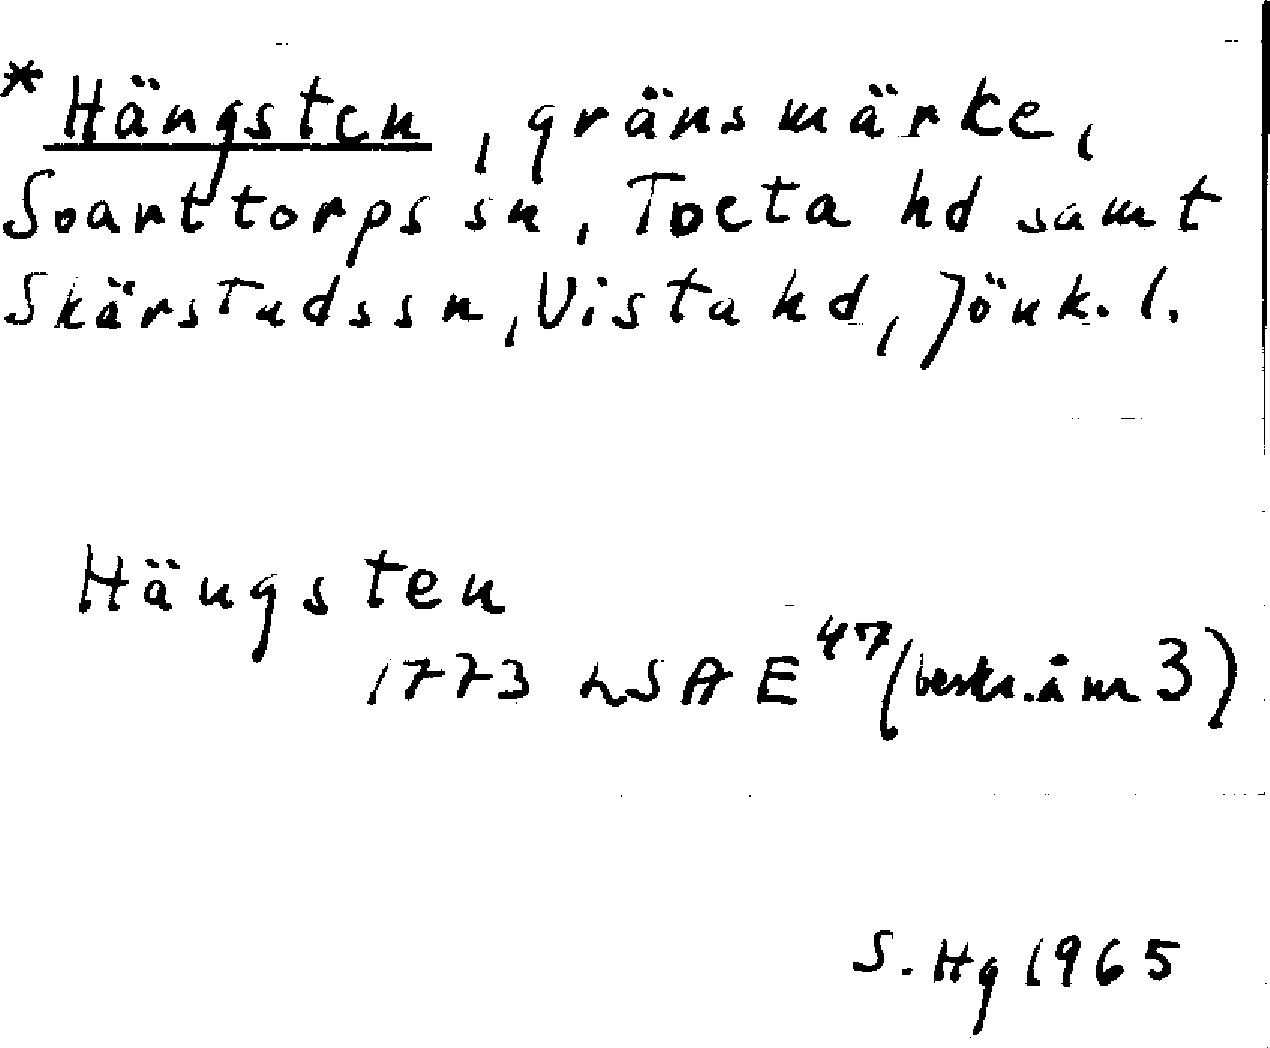 *Hängsten, gränsmärke,
Svarttorps sn, Tveta hd samt
Skärstads sn, Vista hd, Jönk. l.
Hängsten
1773 LSA E 47 (beskr. å nr 3)
S. Hg 1965